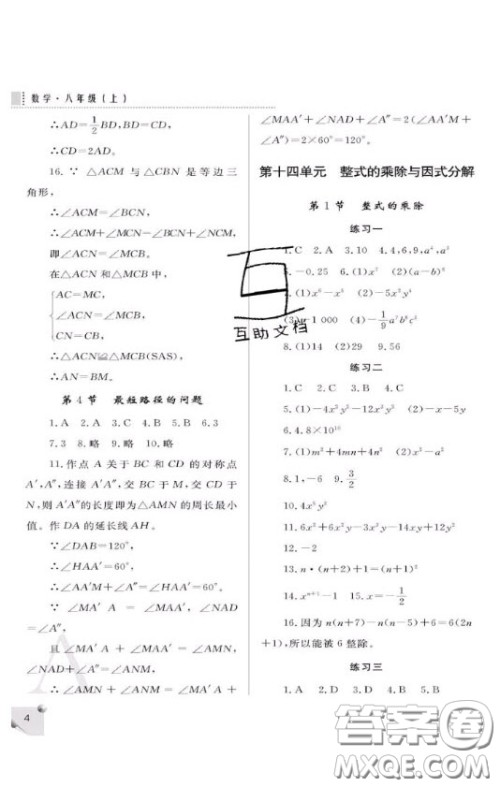 数学·八年级(上)
∴AD=1/2BD,BD=CD,
∴CD=2AD.
16. ∵ △ACM 与 △CBN 是等边三
角形,
∴∠ACM=∠BCN,
∴∠ACM+∠MCN=∠BCN+∠NCM,
即∠ACN=∠MCB.
在△ACN 和△MCB 中,
AC=MC,
∠ACN=∠MCB,
CN=CB,
∴△ACN≌△MCB(SAS),
∴AN=BM.
第 4 节 最短路径的问题
1. A 2. A 3. C 4. B 5. B 6. 3
7. 3 8. 略 9. 略 10. 略
11. 作点 A 关于 BC 和 CD 的对称点
A′,A″,连接 A′A″,交 BC 于 M,交 CD 于
N,则 A′A″的长度即为△AMN 的周长最小
值。作 DA 的延长线 AH。
∵∠DAB=120°,
∴∠HAA′=60°.
∴∠AA′M+∠A″=∠HAA′=60°.
∵ ∠MA′A = ∠MAA′, ∠NAD
=∠A″,
且 ∠MA′A + ∠MAA′ = ∠AMN,
∠NAD+∠A″=∠ANM,
∴ ∠AMN + ∠ANM = ∠MA′A +
4
∠MAA′+∠NAD+∠A″=2(∠AA′M+
∠A″)=2×60°=120°.
第十四单元 整式的乘除与因式分解
第 1 节 整式的乘除
练习一
1. C 2. A 3. 10 4. 4,6,9,a⁴,a²
5. -0.25 6. (1)x⁷ (2)(a-b)⁶
(1)x⁶-x⁵ (2)-5x³y⁴
1 000 (4)-1/9a⁷b⁸c²
8. (1)14 (2)29 9. 56
练习二
1. C 2. D 3. B 4. C
5. (1)-4x²y²-12x²y (2)-4x²
6. 4.8×10¹⁰
7. (1)m²+4mn+4n² (2)-x²-4
8. 1,-6 9. 3/2
10. 4x³y²
11. 6x²+6x²y-3x-14xy-14xy²
12. -2
13. n·(n+2)+1=(n+1)²
14. -1 15. x=-1/2
16. 因为 n(n+7)-n(n-5)+6=6(2n
+1),所以能被 6 整除.
练习三
1. C 2. D 3. A 4. A
互助文档
答案卷
MXQE.COM